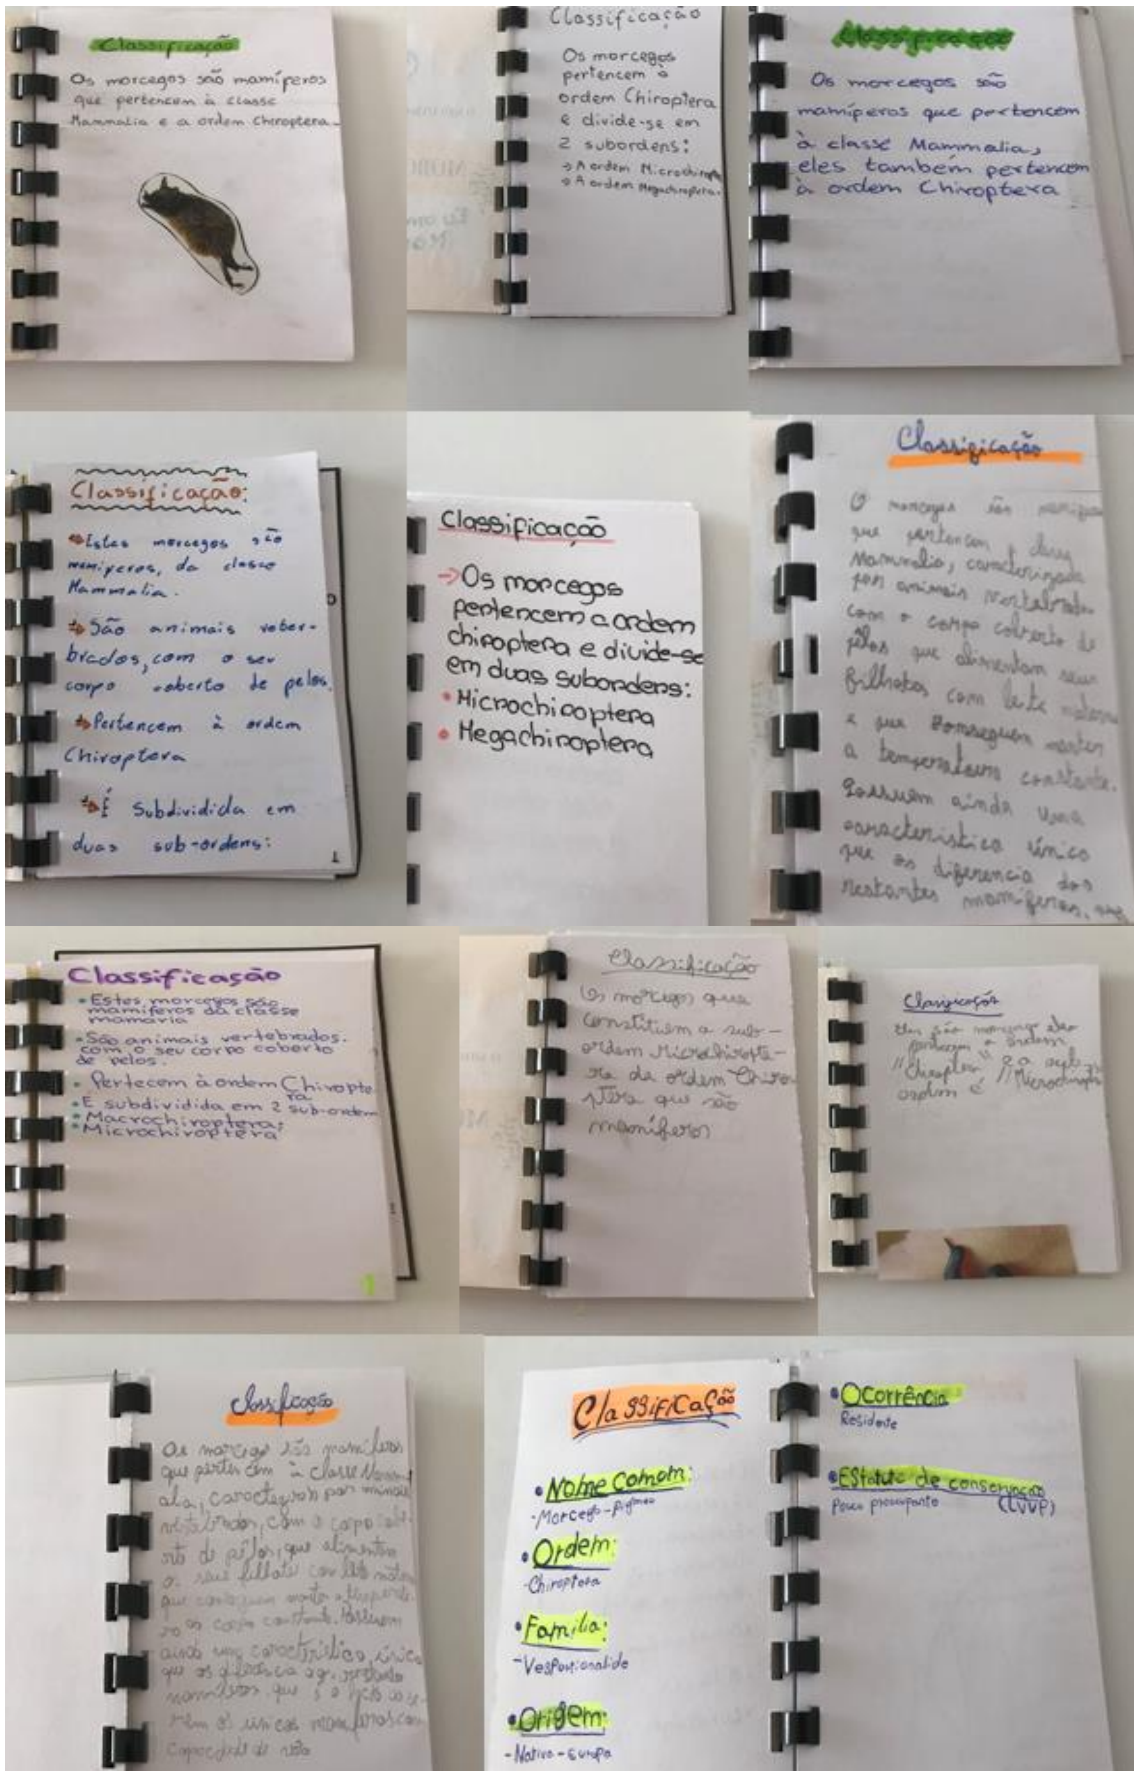 Classificação
Os morcegos são mamíferos
que pertencem à classe
Mammalia e a ordem Chiroptera.
Classificação
Os morcegos
pertencem à
ordem Chiroptera
e divide-se em
2 subordens:
→ A ordem Microchirop
→ A ordem Megachiroptera.
Classificação
Os morcegos são
mamíferos que pertencem
à classe Mammalia,
eles também pertencem
à ordem Chiroptera
Classificação:
Estes morcegos são
mamíferos, da classe
Mammalia.
São animais veter-
brados, com o seu
corpo coberto de pelos.
Pertencem à ordem
Chiroptera
É subdividida em
duas sub-ordens:
1
Classificação
→ Os morcegos
pertencem a ordem
chiroptera e divide-se
em duas subordens:
• Microchiroptera
• Megachiroptera
Classificação
O morcegos são mamíferos
que pertencem à classe
Mammalia, caracterizada
por animais vertebrados
com o corpo coberto de
pêlos que alimentam seus
filhotes com leite materno
e que conseguem manter
a temperatura constante.
Possuem ainda uma
característica única
que os diferencia dos
restantes mamíferos, que
Classificação
• Estes morcegos são
mamíferos da classe
mamaria
• São animais vertebrados.
com o seu corpo coberto
de pelos.
• Pertecem à ordem Chiropte
ra
• É subdividida em 2 sub-ordem
• Macrochiroptera;
• Microchiroptera
1
Classificação
Os morcegos que
constituem a sub-
ordem Microchiropte-
ra da ordem Chiro
ptera que são
mamíferos
Classificação
são
pertecem a ordem
"Chiroptera" e a
ordem é "Microchiropte
Classificação
Os morcegos são mamíferos
que pertencem à classe Mamm
alia, por animais
vertebrados, com o corpo cobe-
rto de pêlos, que alimentam
os seus filhote com leite materno
que conseguem manter a temperatu-
ra do corpo constante. Possuem
ainda uma característica, única
que os diferencia restante
mamíferos que é o facto de se-
rem os únicos mamíferos com
capacidade de vôo
Classificação
• Nome Comom:
- Morcego-pigmeu
• Ordem:
- Chiroptera
• Família:
- Vespertionalide
• Origem:
- Nativo - Europa
• Ocorrência
Residente
• Estatuto de conservação
Pouco preocupante (LVVP)